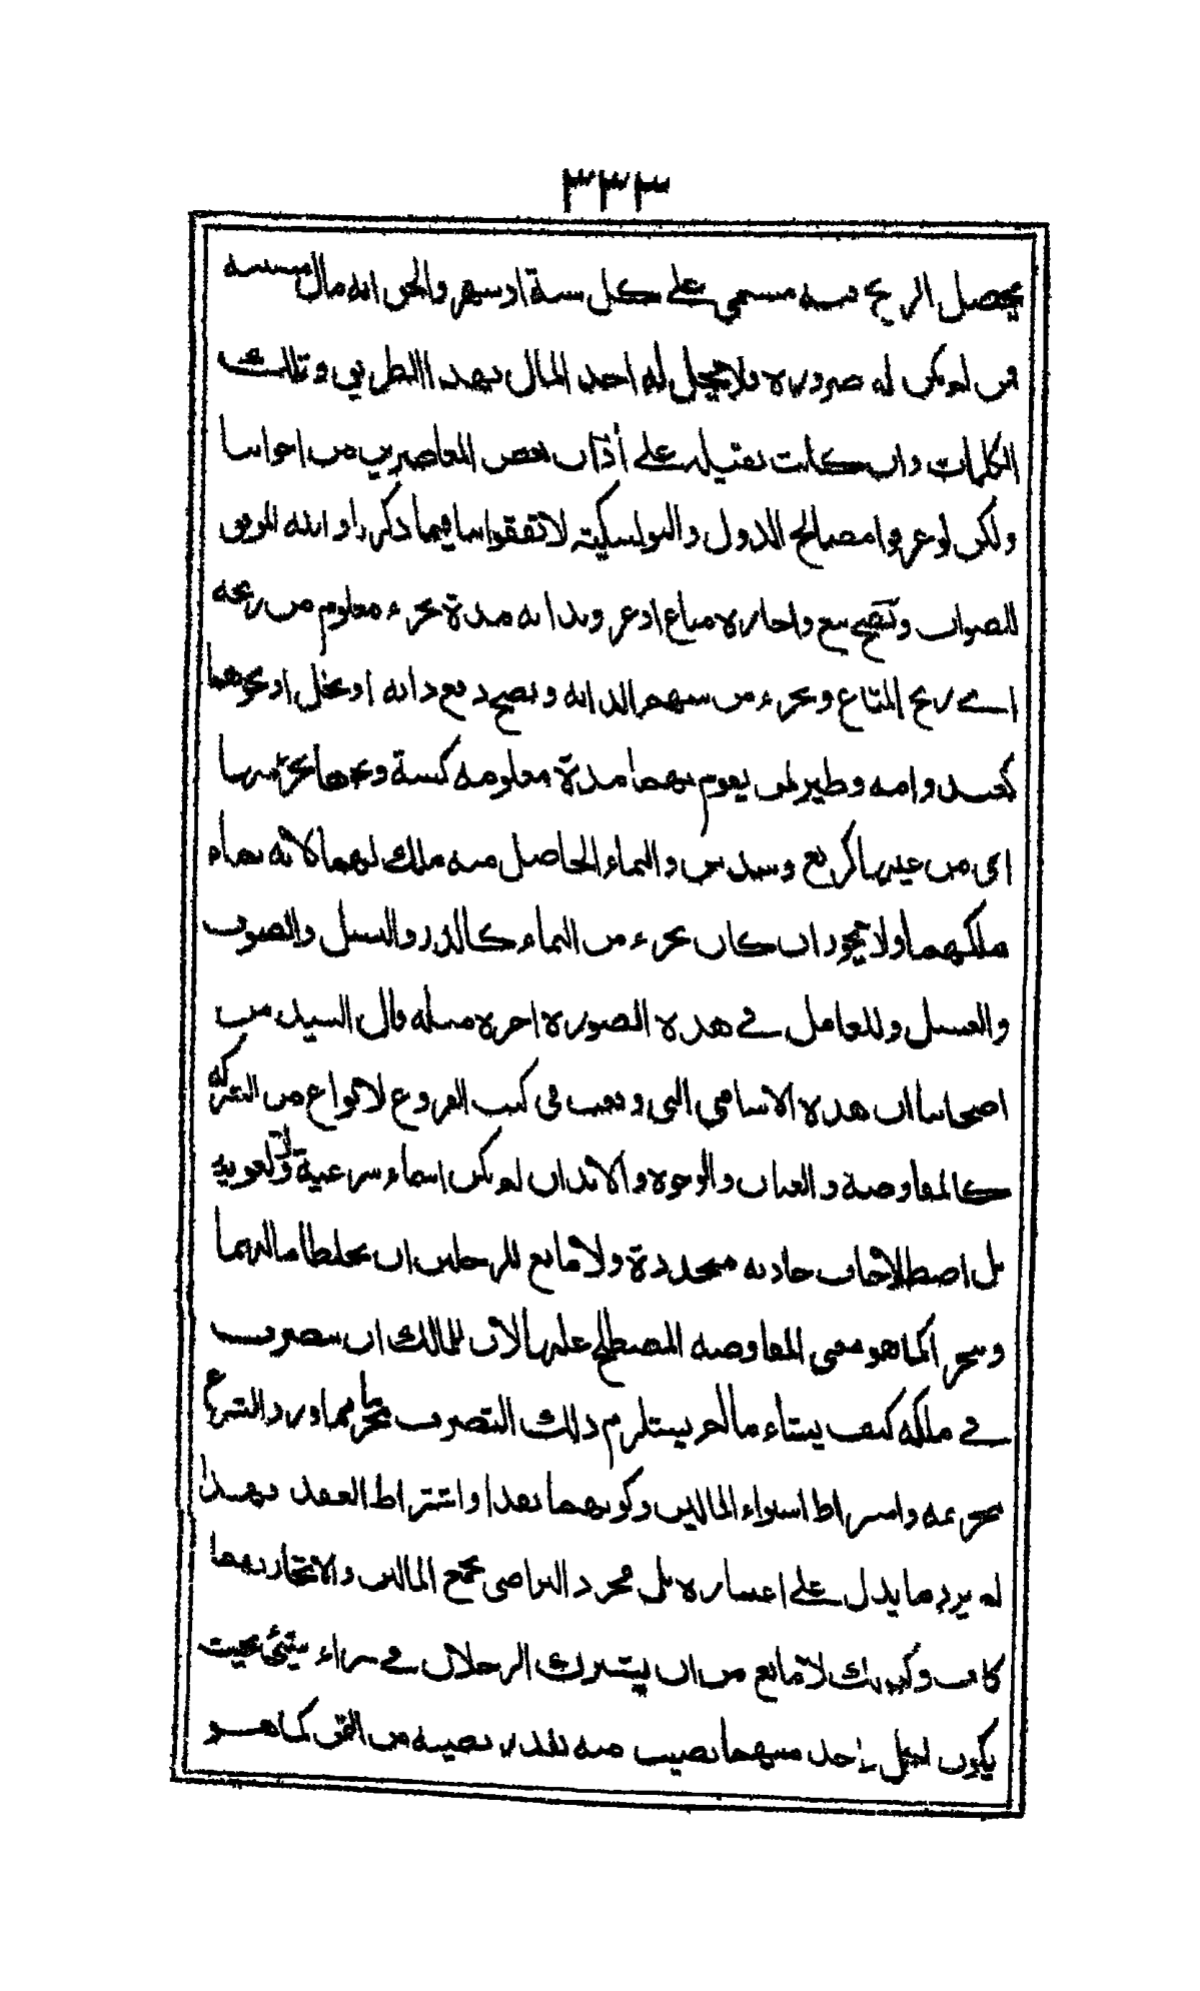 ٣٣٣
يحصل الربح فيه مسمى على كل سنة او شهر والحق انه مال
من لم يكن له ضرورة ولا يحل له اخذ المال بهذا الطريق وتلك
الكلمات وان كانت ثقيلة على أذان بعض المعاصرين من اخواننا
ولكن لو عرفوا مصالح الدول والبولسيكية لاتفقوا بنا فيما ذكرنا والله الموفق
للصواب وتصح بيع واجارة متاع او عرض ودابة مدة بجزء معلوم من ربحه
اے ربح المتاع وبجزء من سهم الدابة وتصح دفع دابة او نحل او نحوهما
كعبد وامة وطير لمن يقوم بهما مدة معلومة كسنة ونحوها بجزء منها
اى من عينها كربع وسدس والنماء الحاصل منه ملك لهما لانه نماء
ملكهما ولا تجوز ان كان بجزء من النماء كالدر والنسل والصوف
والعسل وللعامل فے هذه الصورة اجرة مسئلة قال السيد من
اصحابنا ان هذه الاسامى التى وقعت فى كتب الفروع لانواع من الشركة
كالمفاوضة والعنان والوجوه والابدان لم يكن اسماء شرعية ولا لغوية
بل اصطلاحات حادثة متجددة ولا مانع للرجلين ان يخلطا ماليهما
ويتجرا كما هو معنى المفاوضة المصطلح عليها لان للمالك ان يتصرف
فے ملكه كيف يشاء مالم يستلزم ذلك التصرف محرما مما ورد الشرع
بتحريمه واشتراط استواء المالين وكونهما نقدا واشتراط العقد فهذا
لم يرد ما يدل على اعتباره بل مجرد التراضى بجمع المالين والاتجار بهما
كاف وكذلك لا مانع من ان يشترك الرجلان فے شراء شئ بحيث
يكون لكل واحد منهما نصيب منه بقدر نصيبه من الثمن كما هو